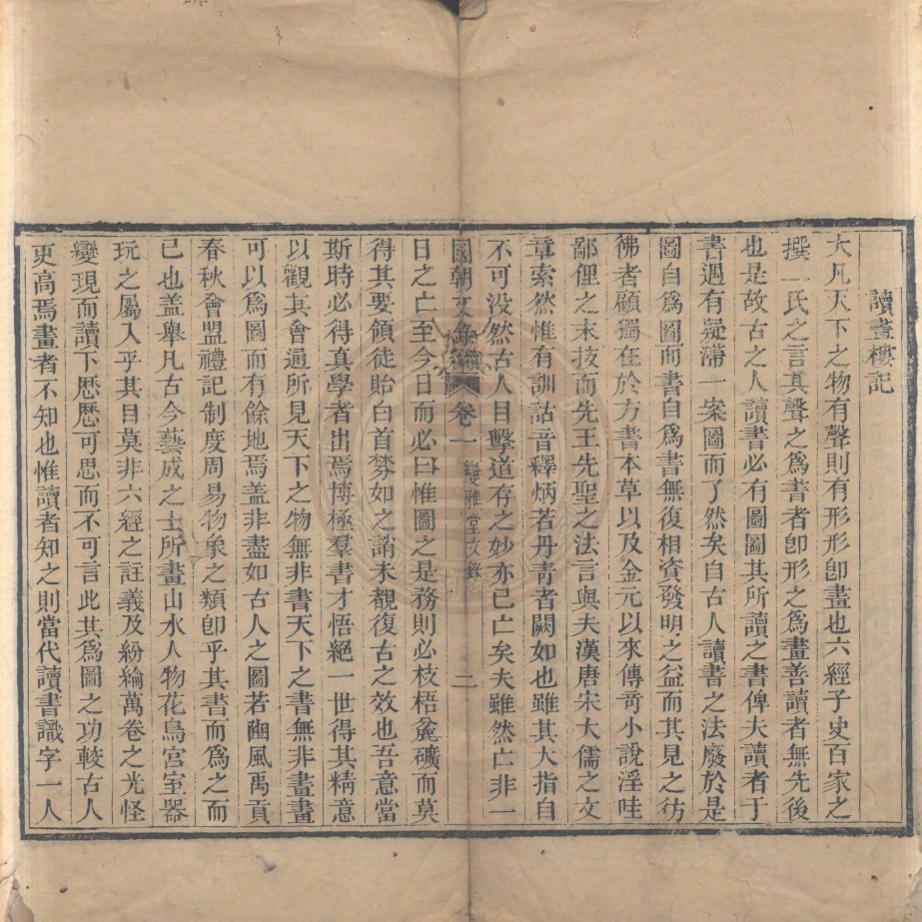 讀畫樓記
大凡天下之物有聲則有形形卽畫也六經子史百家之
撰一氏之言其聲之爲書者卽形之爲畫善讀者無先後
也是故古之人讀書必有圖圖其所讀之書俾夫讀者于
書遇有疑滯一案圖而了然矣自古人讀書之法廢於是
圖自爲圖而書自爲書無復相資發明之益而其見之彷
彿者顧獨在於方書本草以及金元以來傳奇小說淫哇
鄙俚之末技而先王先聖之法言與夫漢唐宋大儒之文
章索然惟有訓詁音釋炳若丹靑者闕如也雖其大指自
不可没然古人目擊道存之妙亦已亡矣夫雖然亡非一
國朝文錄續 卷一 雙雅堂文錄 二
日之亡至今日而必曰惟圖之是務則必枝梧麄礦而莫
得其要領徒貽白首棼如之誚未覩復古之效也吾意當
斯時必得真學者出焉博極羣書才悟絕一世得其精意
以觀其會通所見天下之物無非書天下之書無非畫畫
可以爲圖而有餘地焉盖非盡如古人之圖若豳風禹貢
春秋會盟禮記制度周易物象之類卽乎其書而爲之而
已也盖舉凡古今藝成之士所畫山水人物花鳥宮室器
玩之屬入乎其目莫非六經之註義及紛綸萬卷之光怪
變現而讀下歴歴可思而不可言此其爲圖之功較古人
更高焉畫者不知也惟讀者知之則當代讀書識字一人